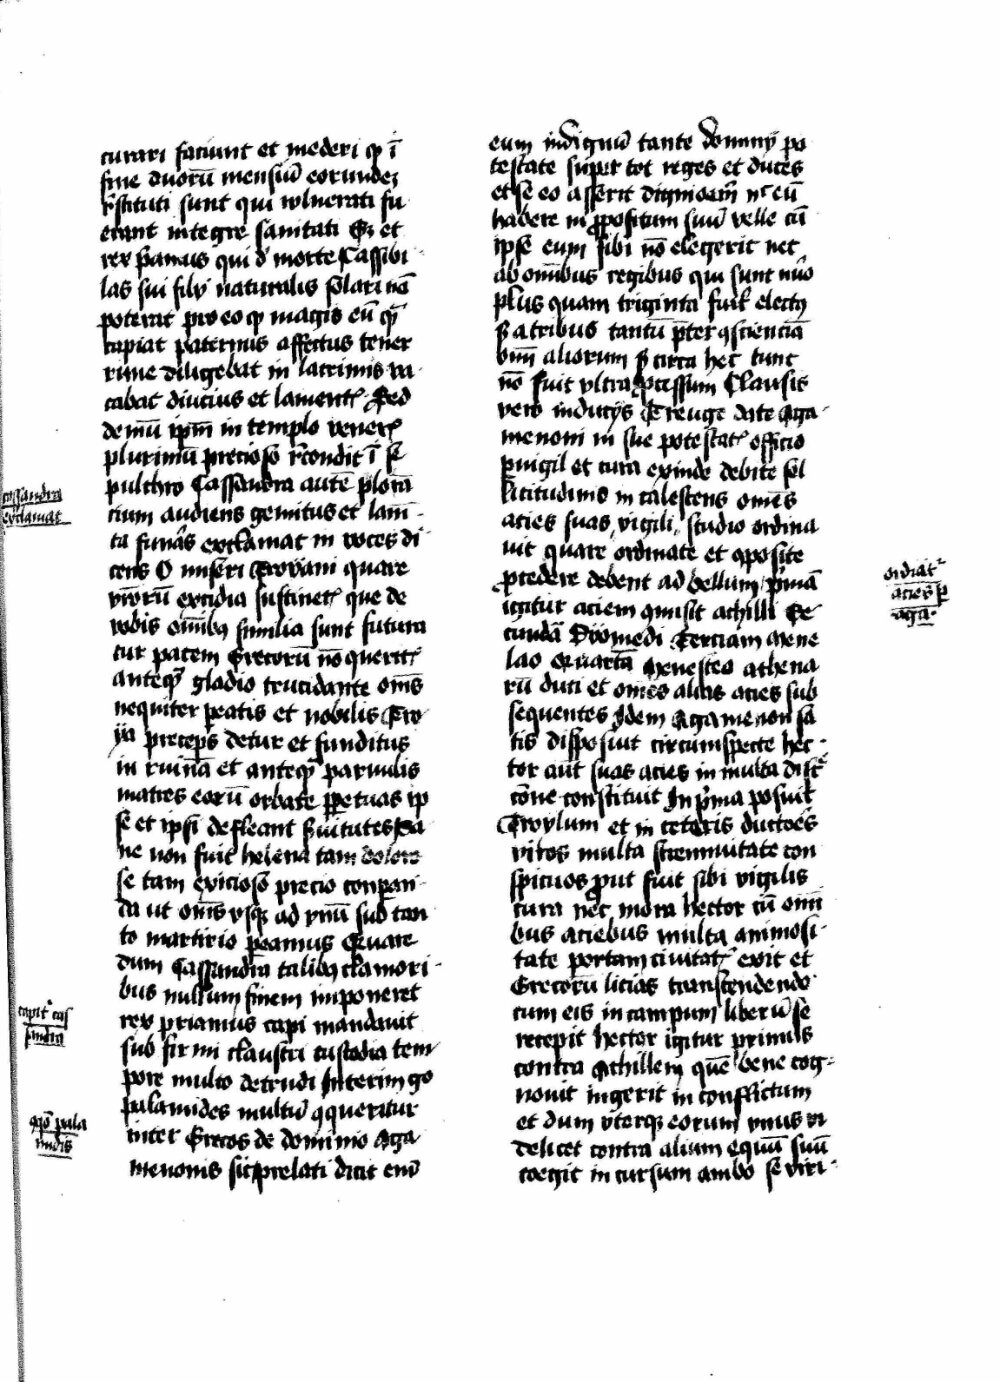 curari faciunt et mederi qͥ ī
fine duorū mensiū eorundeꝫ
rͥstituti sunt qui vulnerati fu
erant integre sanitati Sꝫ et
rex pͥamus qui d̕ morte Cassibi
las sui filij naturalis solari nō
poterat pro eo qͥ magis eū qͣ̄
capiat paternus affectus tener
rime diligebat in lacrimis va
cabat diucius et lament̕ Sed
demū ip̄m in templo vener̕
plurimū precioso rͨcondit ī se
pulchro Cassandra autē plorā
cium audiens gemitus et lam̄
ta funāˢ exclamat in voces di
cens O miseri Troyani quare
vr̄orū excidia sustinet̕ que de
vobis om̄ibꝫ similia sunt futura
cur pacem Grecorū nō querit̕
anteqͣ̄ gladio trucidante om̄s
nequiter peatis et nobilis Tro
ya preceps detur et funditus
in ruinā et anteqͣ̄ paruulis
matres eorū orbate ꝑpetuas ip
se et ipsi defleant s̕uitutes Sa
ne non fuit helena tam doloro
se tam exicioso precio conpari
da ut om̄s vsqꝫ ad vnū sub tan
to martirio ꝑeamus Quare
dum Cassandra talibꝫ clamori
bus nullum finem imponeret
rex priamus capi mandauit
sub firmi claustri custodia tem
pore multo detrudi Interim g̊
palamides multū ꝯqueritur
inter Grecos de dominio Aga
menonis sic prelati dicit em̄
cassandra
exclamat
capit̕ cas
sandra
ꝯqͦ pala
midis
eum indignū tante dominij po
testate super tot reges et duces
et se eo asserit dignioem̄ nͨ eū
habere in ꝓpositum suū velle cū
ipse eum sibi nō elegerit nec
ab om̄ibus regibus qui sunt nūo
plus quam triginta fuit electꝰ
s̕ a tribus tantū p̄ter ꝯscienciā
om̄ aliorum s̕ circa hec tunc
nō fuit vltra ꝓcessum Clausis
vero inducijs Treuge date Aga
menon in sue potestat̕ officio
ꝑuigil et cura exinde debite sol
licitudinis incalescens om̄es
acies suas vigili studio ordina
uit quare ordinate et ꝯposite
ꝓcedere debent ad bellum pͥmā
igitur aciem ꝯmisit achilli Se
cundā Dyomedi Terciam Mene
lao Quartā Menesteo athena
rū duci et om̄es alias acies sub
sequentes Idem Agamenon sa
tis disposuit circumspecte hec
tor aut suas acies in multa discͥ
cōne constituit In pͥma posuit
Troylum et in ceteris ductoēs
viros multa strennuitate con
spicuos ꝓut fuit sibi vigilis
cura nec mora hector cū om̄i
bus aciebus multa animosi
tate portam ciuitat̕ exit et
Grecorū licias transcendendo
cum eis in campum liberū se
recepit hector igitur primus
contra Achillem quē bene cog
nouit ingerit in conflictum
et dum vterqꝫ eorum vnus vi
delicet contra alium equū suū
coegit in cursum ambo se viri
ordiat̕
acies ꝑ
aga